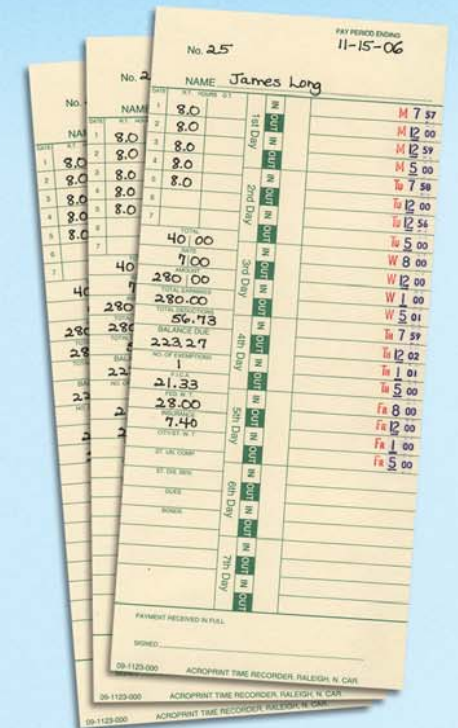 PAY PERIOD ENDING
No. 25 11-15-06
NAME James Long
DATE R.T. HOURS O.T.
1 8.0
2 8.0
3 8.0
4 8.0
5 8.0
6
7
TOTAL
40 00
RATE
7 00
AMOUNT
280 00
TOTAL EARNINGS
280.00
TOTAL DEDUCTIONS
56.73
BALANCE DUE
223.27
NO. OF EXEMPTIONS
1
F.I.C.A.
21.33
FED. W. T.
28.00
INSURANCE
7.40
CITY/ST. W. T.
ST. UN. COMP.
ST. DIS. BEN.
DUES
BONDS
1st Day IN OUT IN OUT
2nd Day IN OUT IN OUT
3rd Day IN OUT IN OUT
4th Day IN OUT IN OUT
5th Day IN OUT IN OUT
6th Day IN OUT IN OUT
7th Day IN OUT IN OUT
M 7 57
M 12 00
M 12 59
M 5 00
TU 7 58
TU 12 00
TU 12 56
TU 5 00
W 8 00
W 12 00
W 1 00
W 5 01
TH 7 59
TH 12 02
TH 1 01
TH 5 00
FR 8 00
FR 12 00
FR 1 00
FR 5 00
PAYMENT RECEIVED IN FULL
SIGNED
09-1123-000 ACROPRINT TIME RECORDER, RALEIGH, N. CAR.
No. 2
NAM
DATE
1 8.0
2 8.0
3 8.0
4 8.0
5 8.0
6
7
40
7
280
280
09-1123-000 ACROPRINT TIME RECORDER, RALEIGH, N. CAR.
No.
NAM
DATE
1 8.0
2 8.0
3 8.0
4 8.0
5 8.0
6
7
40
280
28
09-1123-000 ACROPRINT TIME RECORDER, RALEIGH, N. CAR.